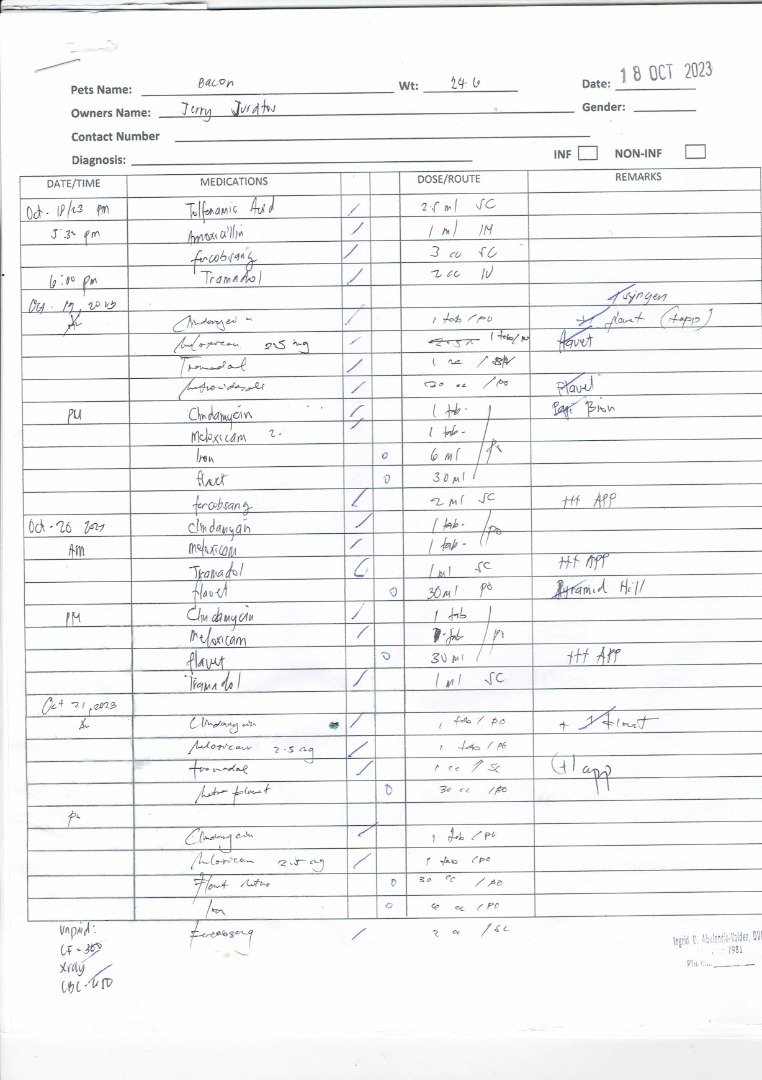 Pets Name: Bacon Wt: 24.6 Date: 18 OCT 2023
Owners Name: Jerry Gender:
Contact Number
Diagnosis: INF NON-INF
DATE/TIME MEDICATIONS DOSE/ROUTE REMARKS
Oct. 18/23 pm Tolfenamic Acid 2.5 ml SC
5:30 pm Amoxicillin 1 ml IM
fercobsang 3 cc SC
6:00 pm Tramadol 2 cc IV
Oct. 19, 2023 1 syringe
Clindamycin 1 tab /PO flavet (tapp)
Meloxicam 2.5 mg 1 tab/po flavet
Tramadol 1 cc /
/PO Flavet
PM Clindamycin 1 tab.
Meloxicam 2. 1 tab.
Iron 6 ml
flavet 30 ml
fercobsang 2 ml SC ++ APP
Oct-20 Clindamycin 1 tab. /PO
AM Meloxicam 1 tab.
Tramadol 1 ml SC ++ APP
flavet 30 ml PO Pyramid Hill
PM Clindamycin 1 tab
Meloxicam tab
flavet 30 ml ++ APP
Tramadol 1 ml SC
Oct 21, 2023
Clindamycin 1 tab / PO + 1 flavet
Meloxicam 2.5 mg 1 tab / PO
tramadol 1 cc / SC (+) app
30 cc /PO
pm
Clindamycin 1 tab / PO
Meloxicam 2.5 mg 1 tab /PO
30 cc /PO
Iron cc /PO
Fercobsang 2 cc /SC
Unpaid:
CF - 300
Xray
CBC - 450